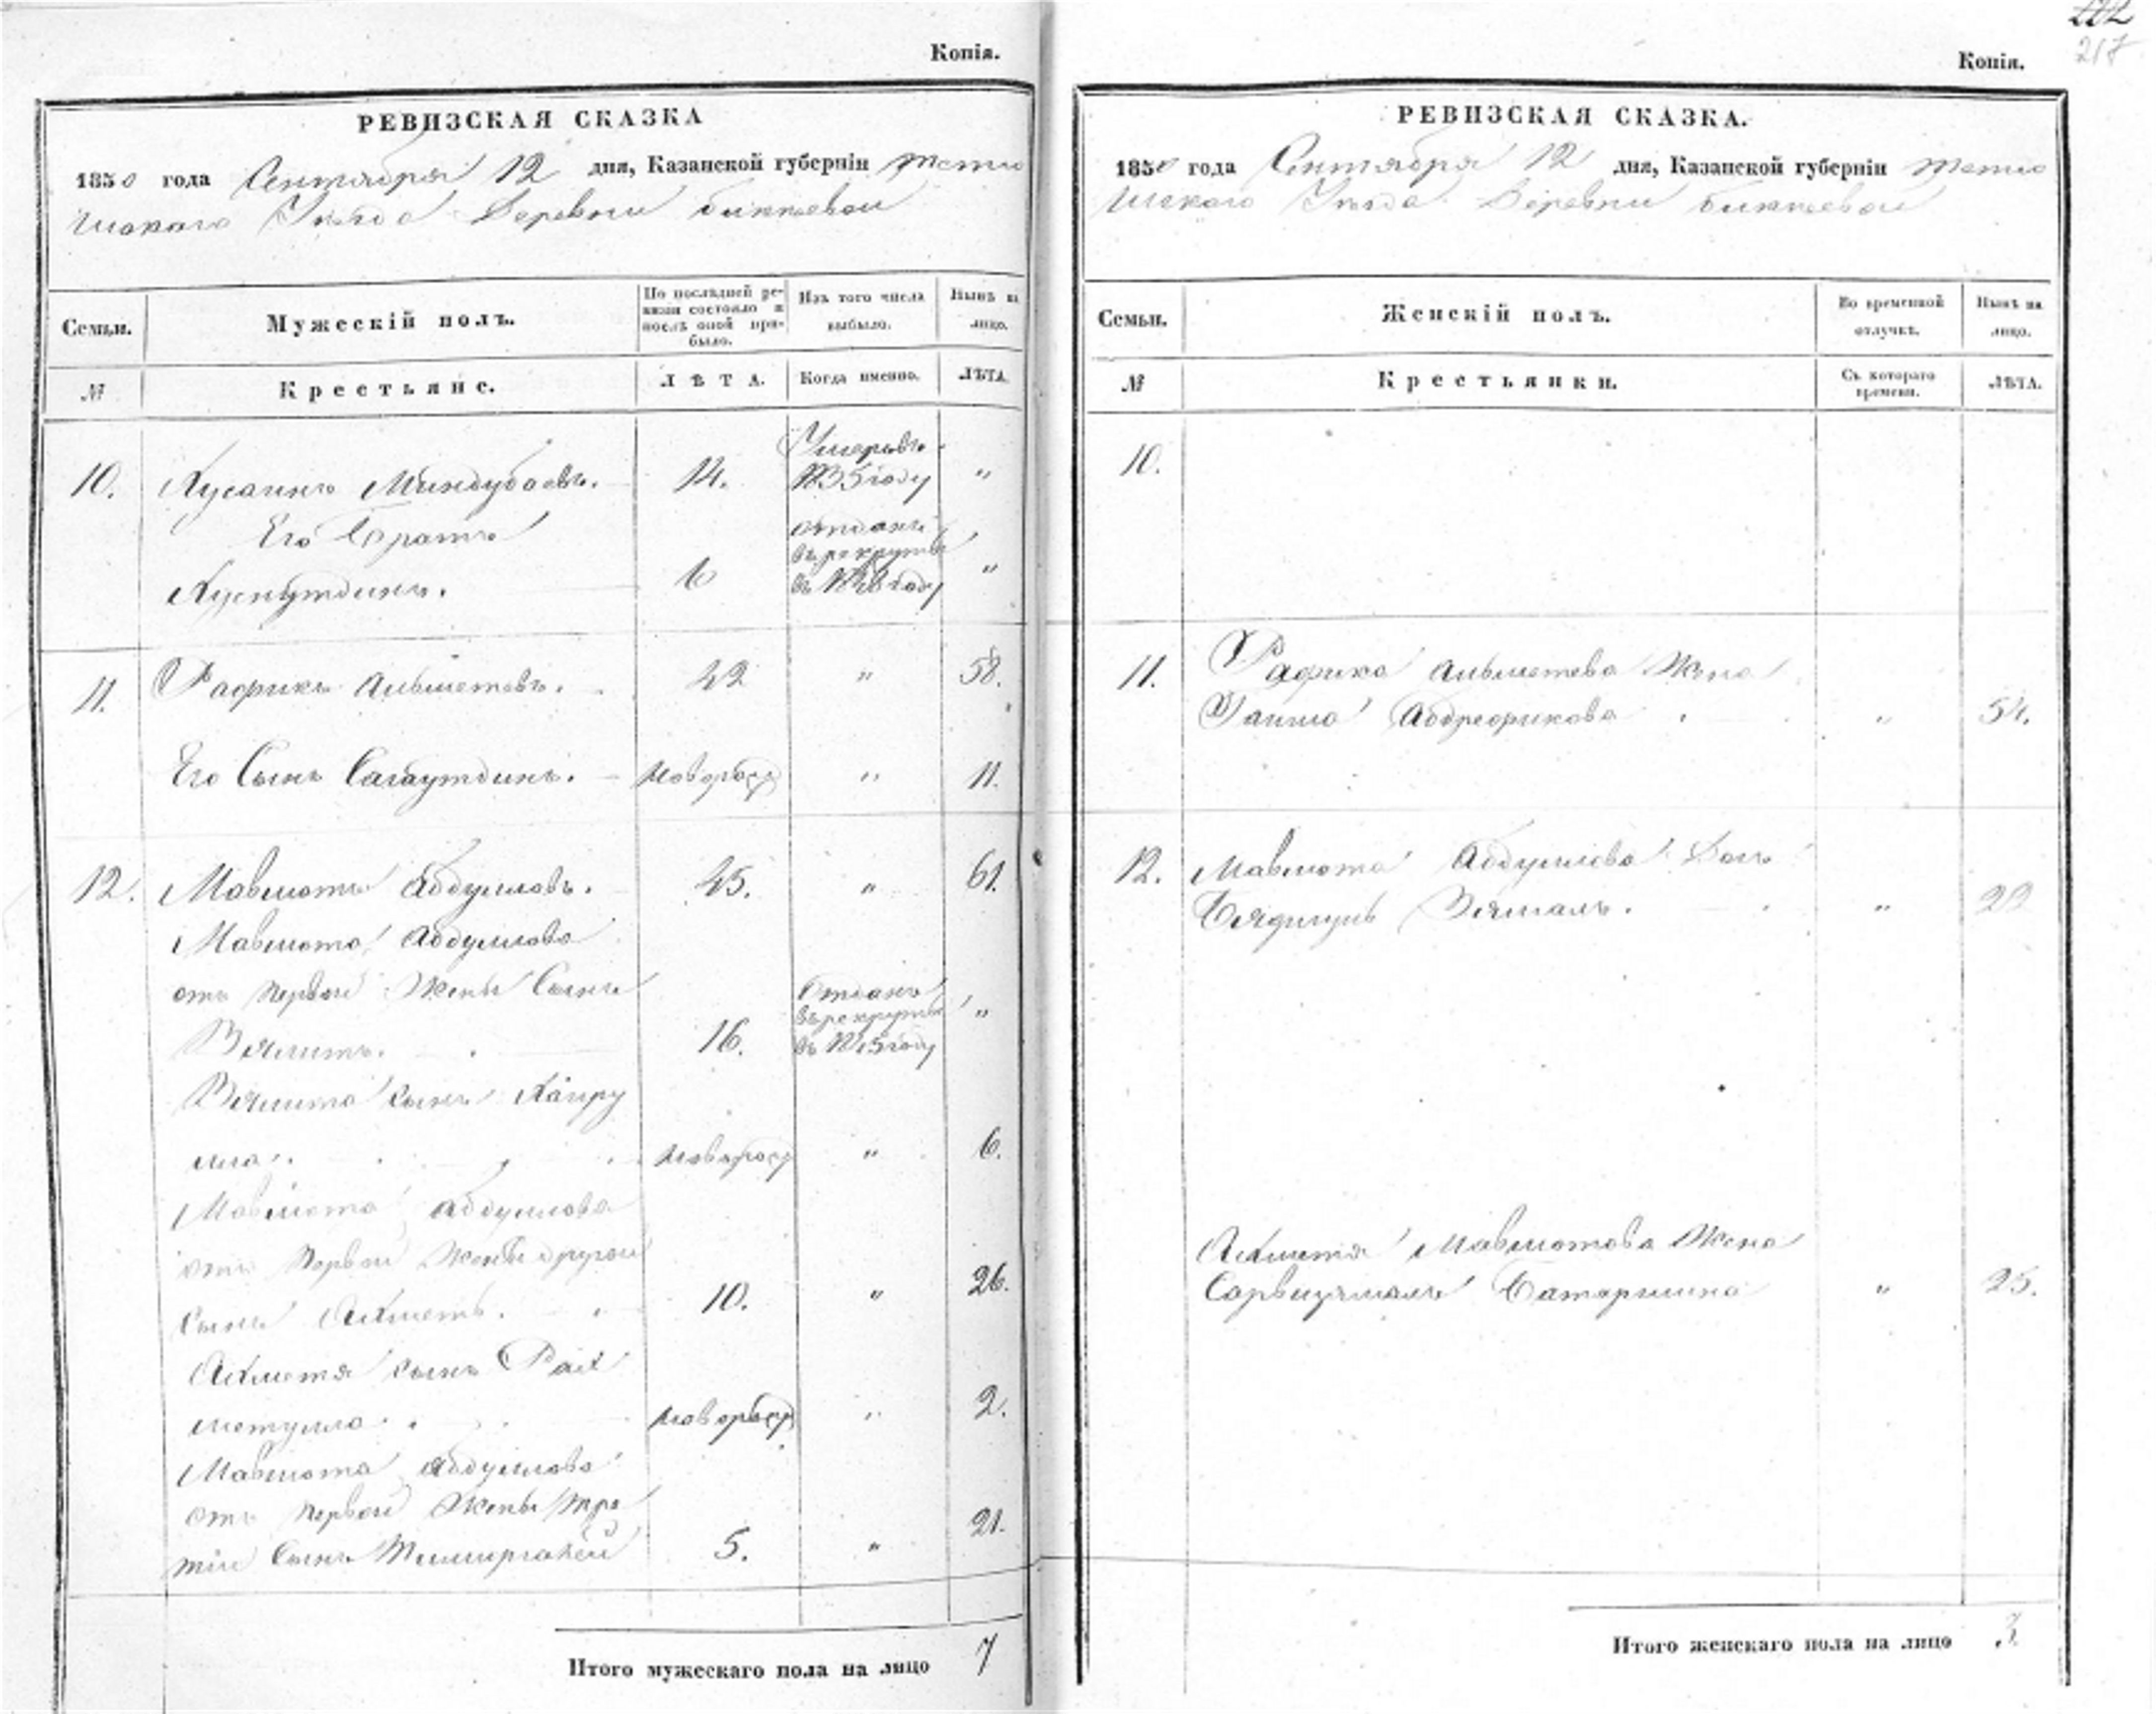 Копія.
РЕВИЗСКАЯ СКАЗКА
1850 года Сентября 12 дня, Казанской губерніи Тетю
шскаго Уѣзда Деревни Биккеевой
Семьи.
Мужескій полъ.
По послѣдней ре-
визіи состояло и
послѣ оной при-
было.
Изъ того числа
выбыло.
Нынѣ на
лицо.
№
Крестьяне.
ЛѢТА.
Когда именно.
ЛѢТА.
10. Хусаинъ Миндубаевъ. 14. Умеръ въ 1835 году "
Его Братъ
Хуснутдинъ. 6 отданъ въ рекруты въ году "
11. Рафикъ Аишметевъ. 42 " 58.
Его Сынъ Сагаутдинъ. новорож " 11.
12. Мавлютъ Абдулловъ. 45. " 61.
Мавлюта Абдуллова
отъ первой Жены Сынъ
16. Отданъ въ рекруты въ году "
сынъ Хайру
лла. новорож " 6.
Мавлюта Абдуллова
отъ первой Жены другой
сынъ Ахметъ. 10. " 26.
Ахметя сынъ Рах
метулла. новорож " 2.
Мавлюта Абдуллова
отъ первой Жены тре
тій Сынъ Тимиргалей 5. " 21.
Итого мужескаго пола на лицо 7
217
Копія.
РЕВИЗСКАЯ СКАЗКА.
1850 года Сентября 12 дня, Казанской губерніи Тетю
шскаго Уѣзда Деревни Биккеевой
Семьи.
Женскій полъ.
Во временной
отлучкѣ.
Нынѣ на
лицо.
№
Крестьянки.
Съ котораго
времени.
ЛѢТА.
10.
11. Рафика Аишметева Жена
Абдрефикова " 54.
12. Мавлюта Абдуллова Дочь
" 22
Ахметя Мавлютова Жена
Батаршина " 25.
Итого женскаго пола на лицо 3.